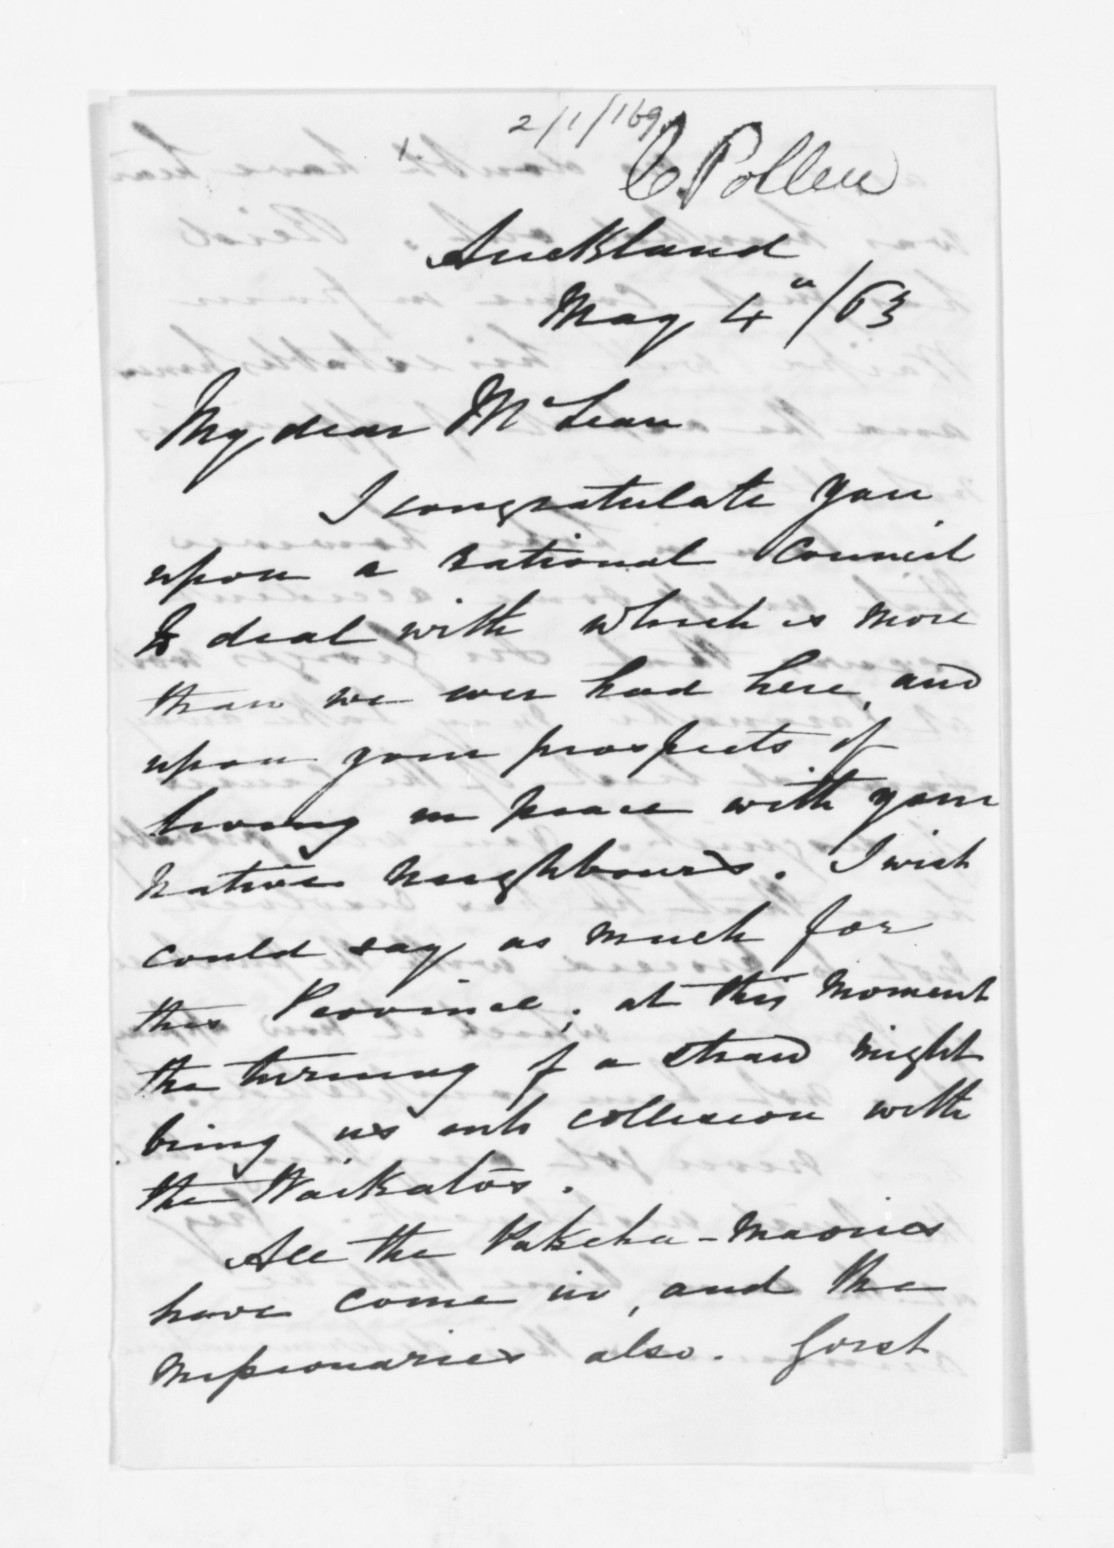 2/1/169
C Pollen
Auckland
May 4"/63
My dear McLean
I congratulate you
upon a rational Council
to deal with which is more
than we ever had here, and
upon your prospects of
living in peace with your
native neighbours. I wish
could say as much for
this Province; at this moment
the turning of a straw might
bring us into collision with
the Waikatos.
All the Pakeha-maories
have come in, and the
missionaries also. Gorst